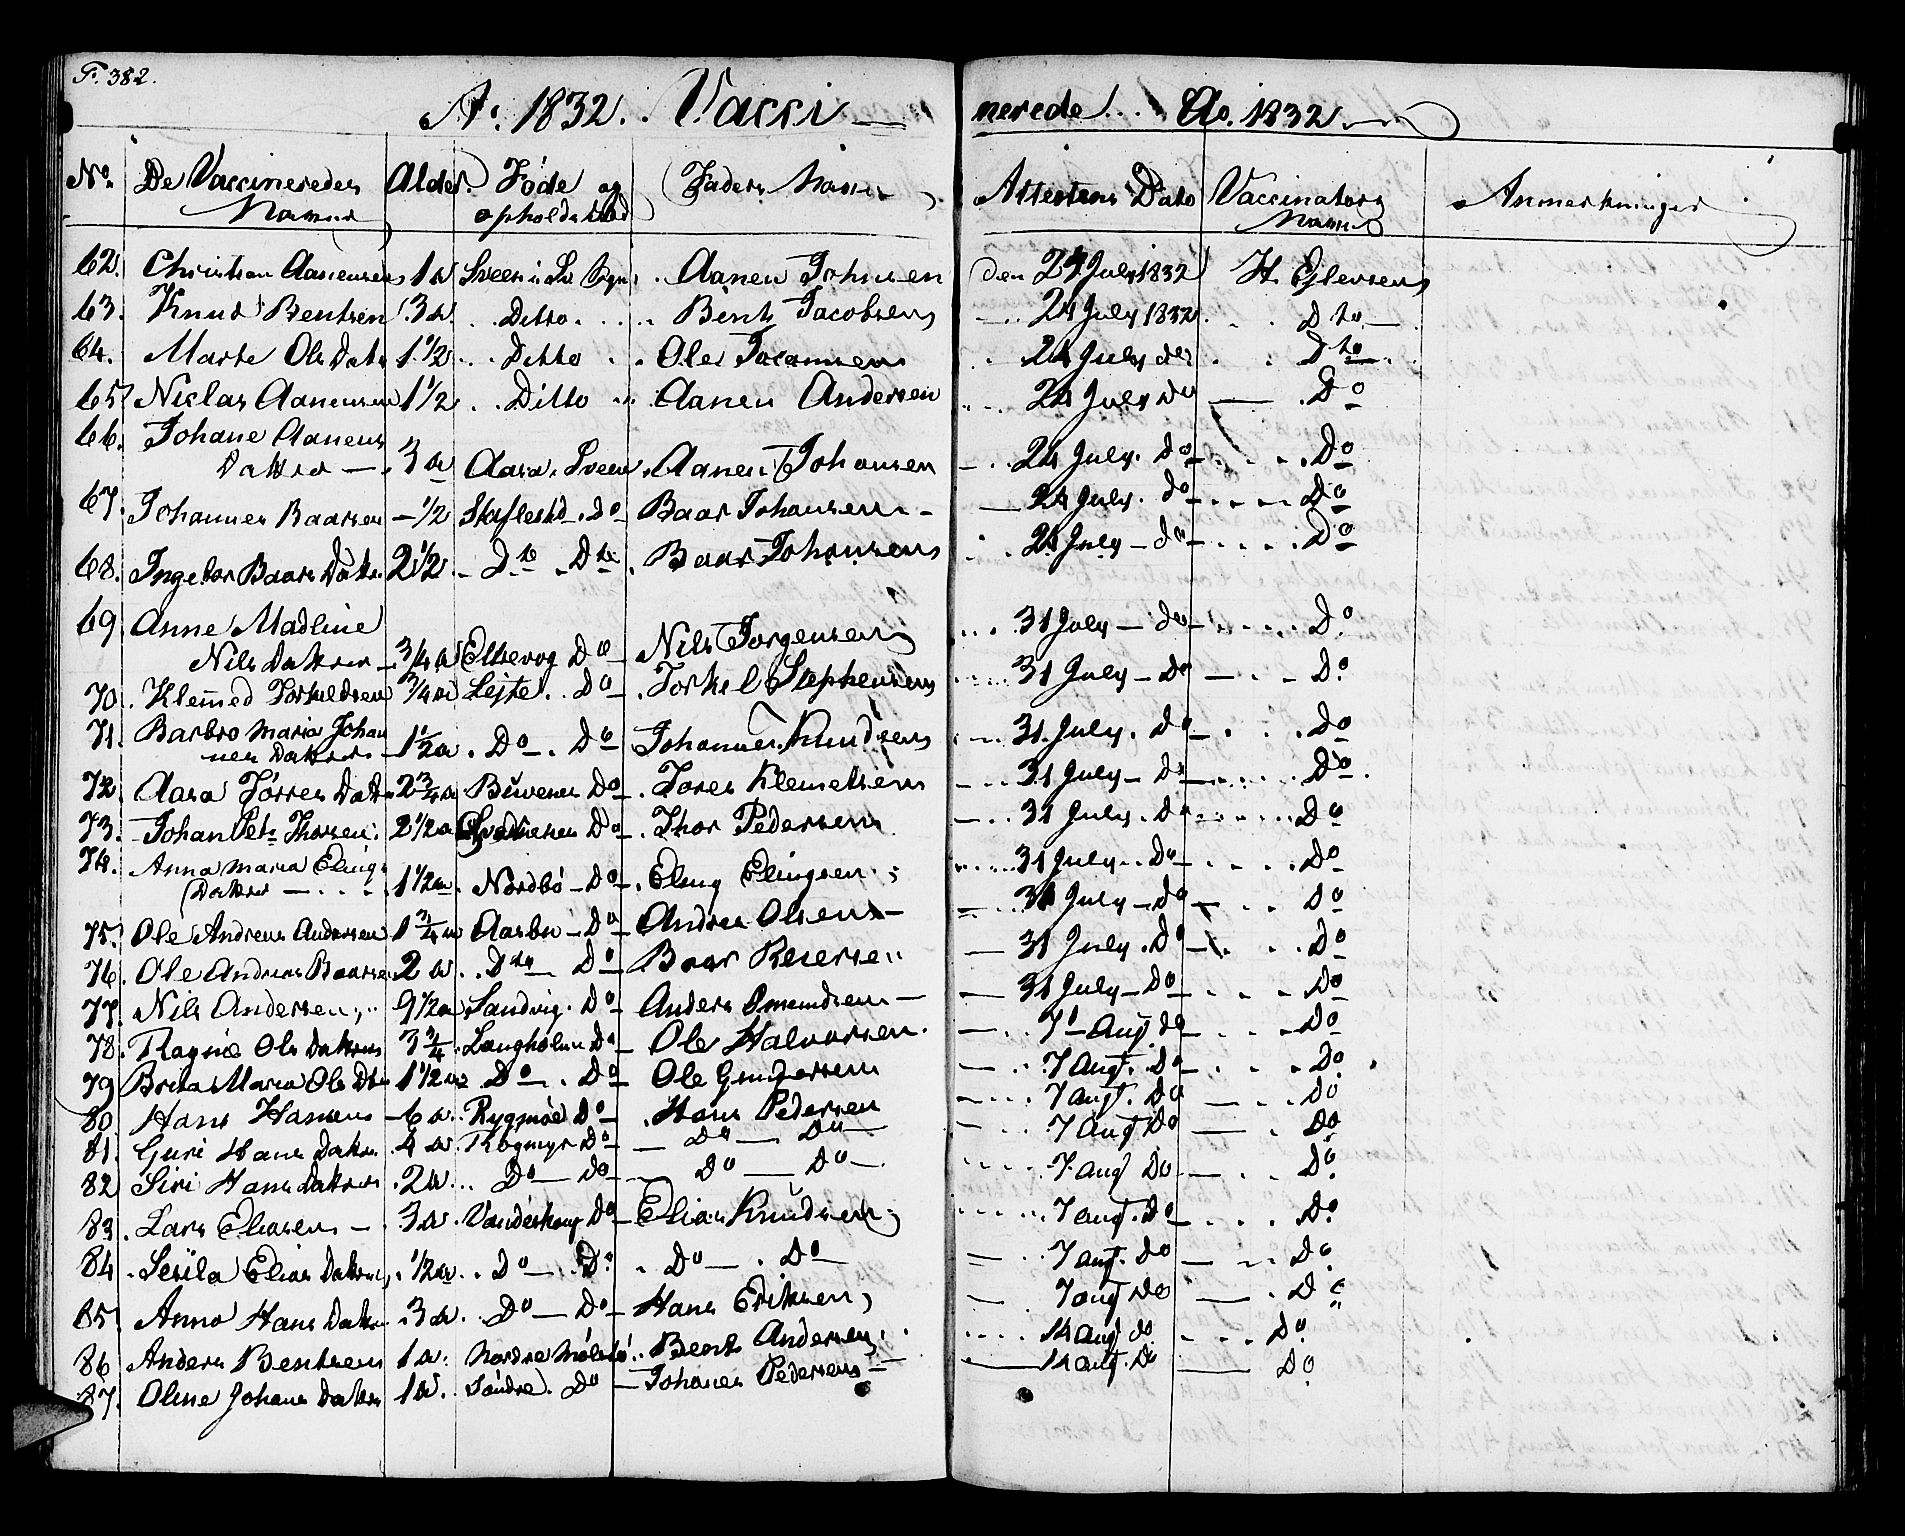 F. 382.
Ao. 1832. Vacci — nerede. Ao. 1832.
No. De Vaccineredes Alder. Føde og Faders Navn Attestens Dato Vaccinators Anmerkninger
Navne opholdssted Navn
62. Christian Aanensen 1 a Sveen i Aanen Johnsen den 24 July 1832 H.
63. Knud Bentsen 3 a. Ditto. Bent Jacobsen 24 July 1832 Dto
64. Marte Ols Datr 1 1/2 Ditto Ole 24 July do Dto
65 Niclas Aanensen 1 1/2 Ditto Aanen Andersen 24 July do Do
66. Johane Aanens
Datter — 3 a Aasa. Sveen Aanen Johansen 24 July. Do Do
67. Johannes Baarsen — 1/2 Do Baar Johansen 24 July. do Do
68. Ingebor Baars Datr 2 1/2 Dto Dto Baar Johansen 24 July — do Do
69 Anne Madline
Nils Datter 3/4 a Do Nils Jorgensen 31 July — do Do
70. Klemed Torkeldsen 3/4 a Lejte. Do Torkel Stephensen 31 July — Do Do
71. Barbro Maria Johan
nes Datter 1 1/2 a Do. Do Johannes Knudsen 31 July. Do Do
72. Aasa Tørres Datr 2 3/4 a Do Tores Klemetsen 31 July — Do Do
73. Johan Petr Thorsen. 2 1/2 a Do Thor Pedersen 31 July. Do Do
74. Anna Maria Elings
Datter — 1 1/2 a Nordbø — Do Eling Elingsen 31 July. Do Do
75. Ole Andreas Andersen 1 3/4 a Do Andreas Olsen 31 July — Do Do
76. Ole Andreas Baarsen 2 a Dto Do Baar 31 July. Do Do
77. Nils Andersen 9 1/2 a Sandvig. Do Anders Omundsen 31 July — Do Do
78. Ragnie Ols Datter 3 3/4 Langholm Do Ole Halvorsen. 7d Aug. do Do
79 Brita Maria Ole Dtr 1 1/2 a Do. Do Ole Gundersen 7 Aug. Do Do
80. Hans Hansen 6 a Do Hans Pedersen 7 aug. Do Do
81. Guri Hans Datter 4 a Do Do — Do 7 Aug Do Do
82 Siri Hans Datter 2 a Do — Do Do — Do 7 aug Do Do
83. Lars Eliasen 3 a. Do Elias Knudsen 7 aug. Do Do
84. Elias Datter 1/2 a. Do — Do Do — Do 7 aug. do Do
85. Anna Hans Datr 3 a. Do — Do Hans Eriksen 7 aug Do Do
86 Anders Bentsen 1 a. Nordre Bent Andersen 14 aug do Do
87. Oline Johans Datter 1 a. Søndre. Do Johanes Pedersen 14 aug. Do Do